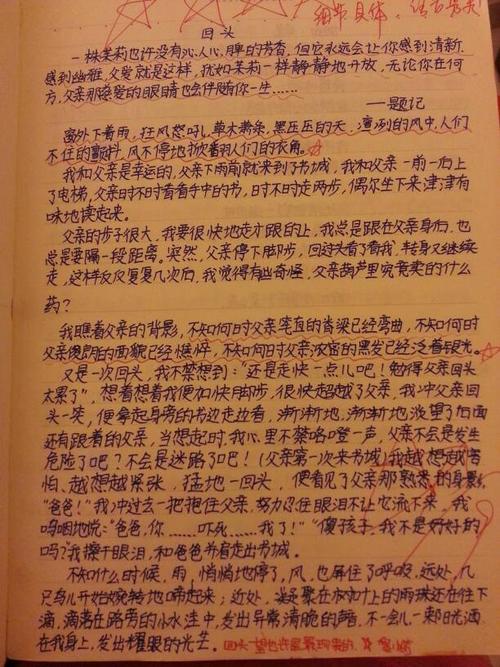 细节具体，
回头
一株茉莉也许没有沁人心脾的芳香，但它永远会让你感到清新，
感到幽雅，父爱就是这样，犹如茉莉一样静静地开放，无论你在何
方，父亲那慈爱的眼睛也会伴随你一生……
——题记
窗外下着雨，狂风怒吼，草木萧条，黑压压的天，凛冽的风中，人们
不住的颤抖，风不停地掀着人们的衣角。
我和父亲是幸运的，父亲下雨前就来到了书城，我和父亲一前一后上
了电梯，父亲时不时看看手中的书，时不时走两步，偶尔坐下来津津有
味地读起来。
父亲的步子很大，我要很快地走才跟的上，我总是跟在父亲身后，也
总是要隔一段距离。突然，父亲停下脚步，回过头看了看我，转身又继续
走，这样反反复复几次后，我觉得有些奇怪，父亲葫芦里究竟卖的什么
药？
我瞧着父亲的背影，不知何时父亲笔直的脊梁已经弯曲，不知何时
父亲俊朗的面貌已经憔悴，不知何时父亲浓密的黑发已经泛着银光。
又是一次回头，我不禁想到：“还是走快一点儿吧！免得父亲回头
太累了”，想着想着我便加快脚步，很快超越了父亲，我冲父亲回
头一笑，便拿起身旁的书边走边看，渐渐地、渐渐地没望了后面
还有跟着的父亲，当想起时，我心里不禁咯噔一声，父亲不会是发生
危险了吧？不会是迷路了吧！（父亲第一次来书城）我越想越害
怕、越想越紧张，猛地一回头，便看见了父亲那熟悉的身影，
“爸爸！”我冲过去一把抱住父亲，努力忍住眼泪不让它流下来，我
呜咽地说：“爸爸，你……吓死……我了！”“傻孩子，我不是好好的
吗？我擦干眼泪，和爸爸并肩走出书城。
不知什么时候，雨，悄悄地停了，风，也屏住了呼吸，远处，几
只鸟儿开始婉转地啼起来；近处，凝聚在树叶上的雨珠还在往下
滴，滴落在路旁的小水洼中，发出异常清脆的声音，不一会儿一束阳光洒
在我身上，发出耀眼的光芒。
回头一望也许是最